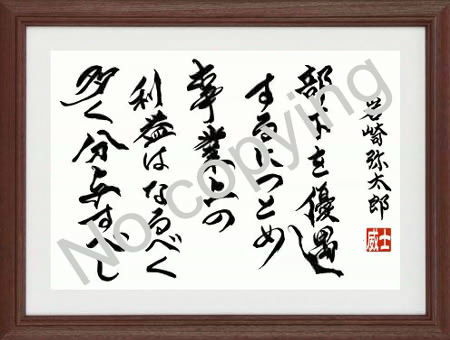 岩崎弥太郎
部下を優遇
するにつとめ
事業上の
利益はなるべく
多く分与すべし
威士
No copying